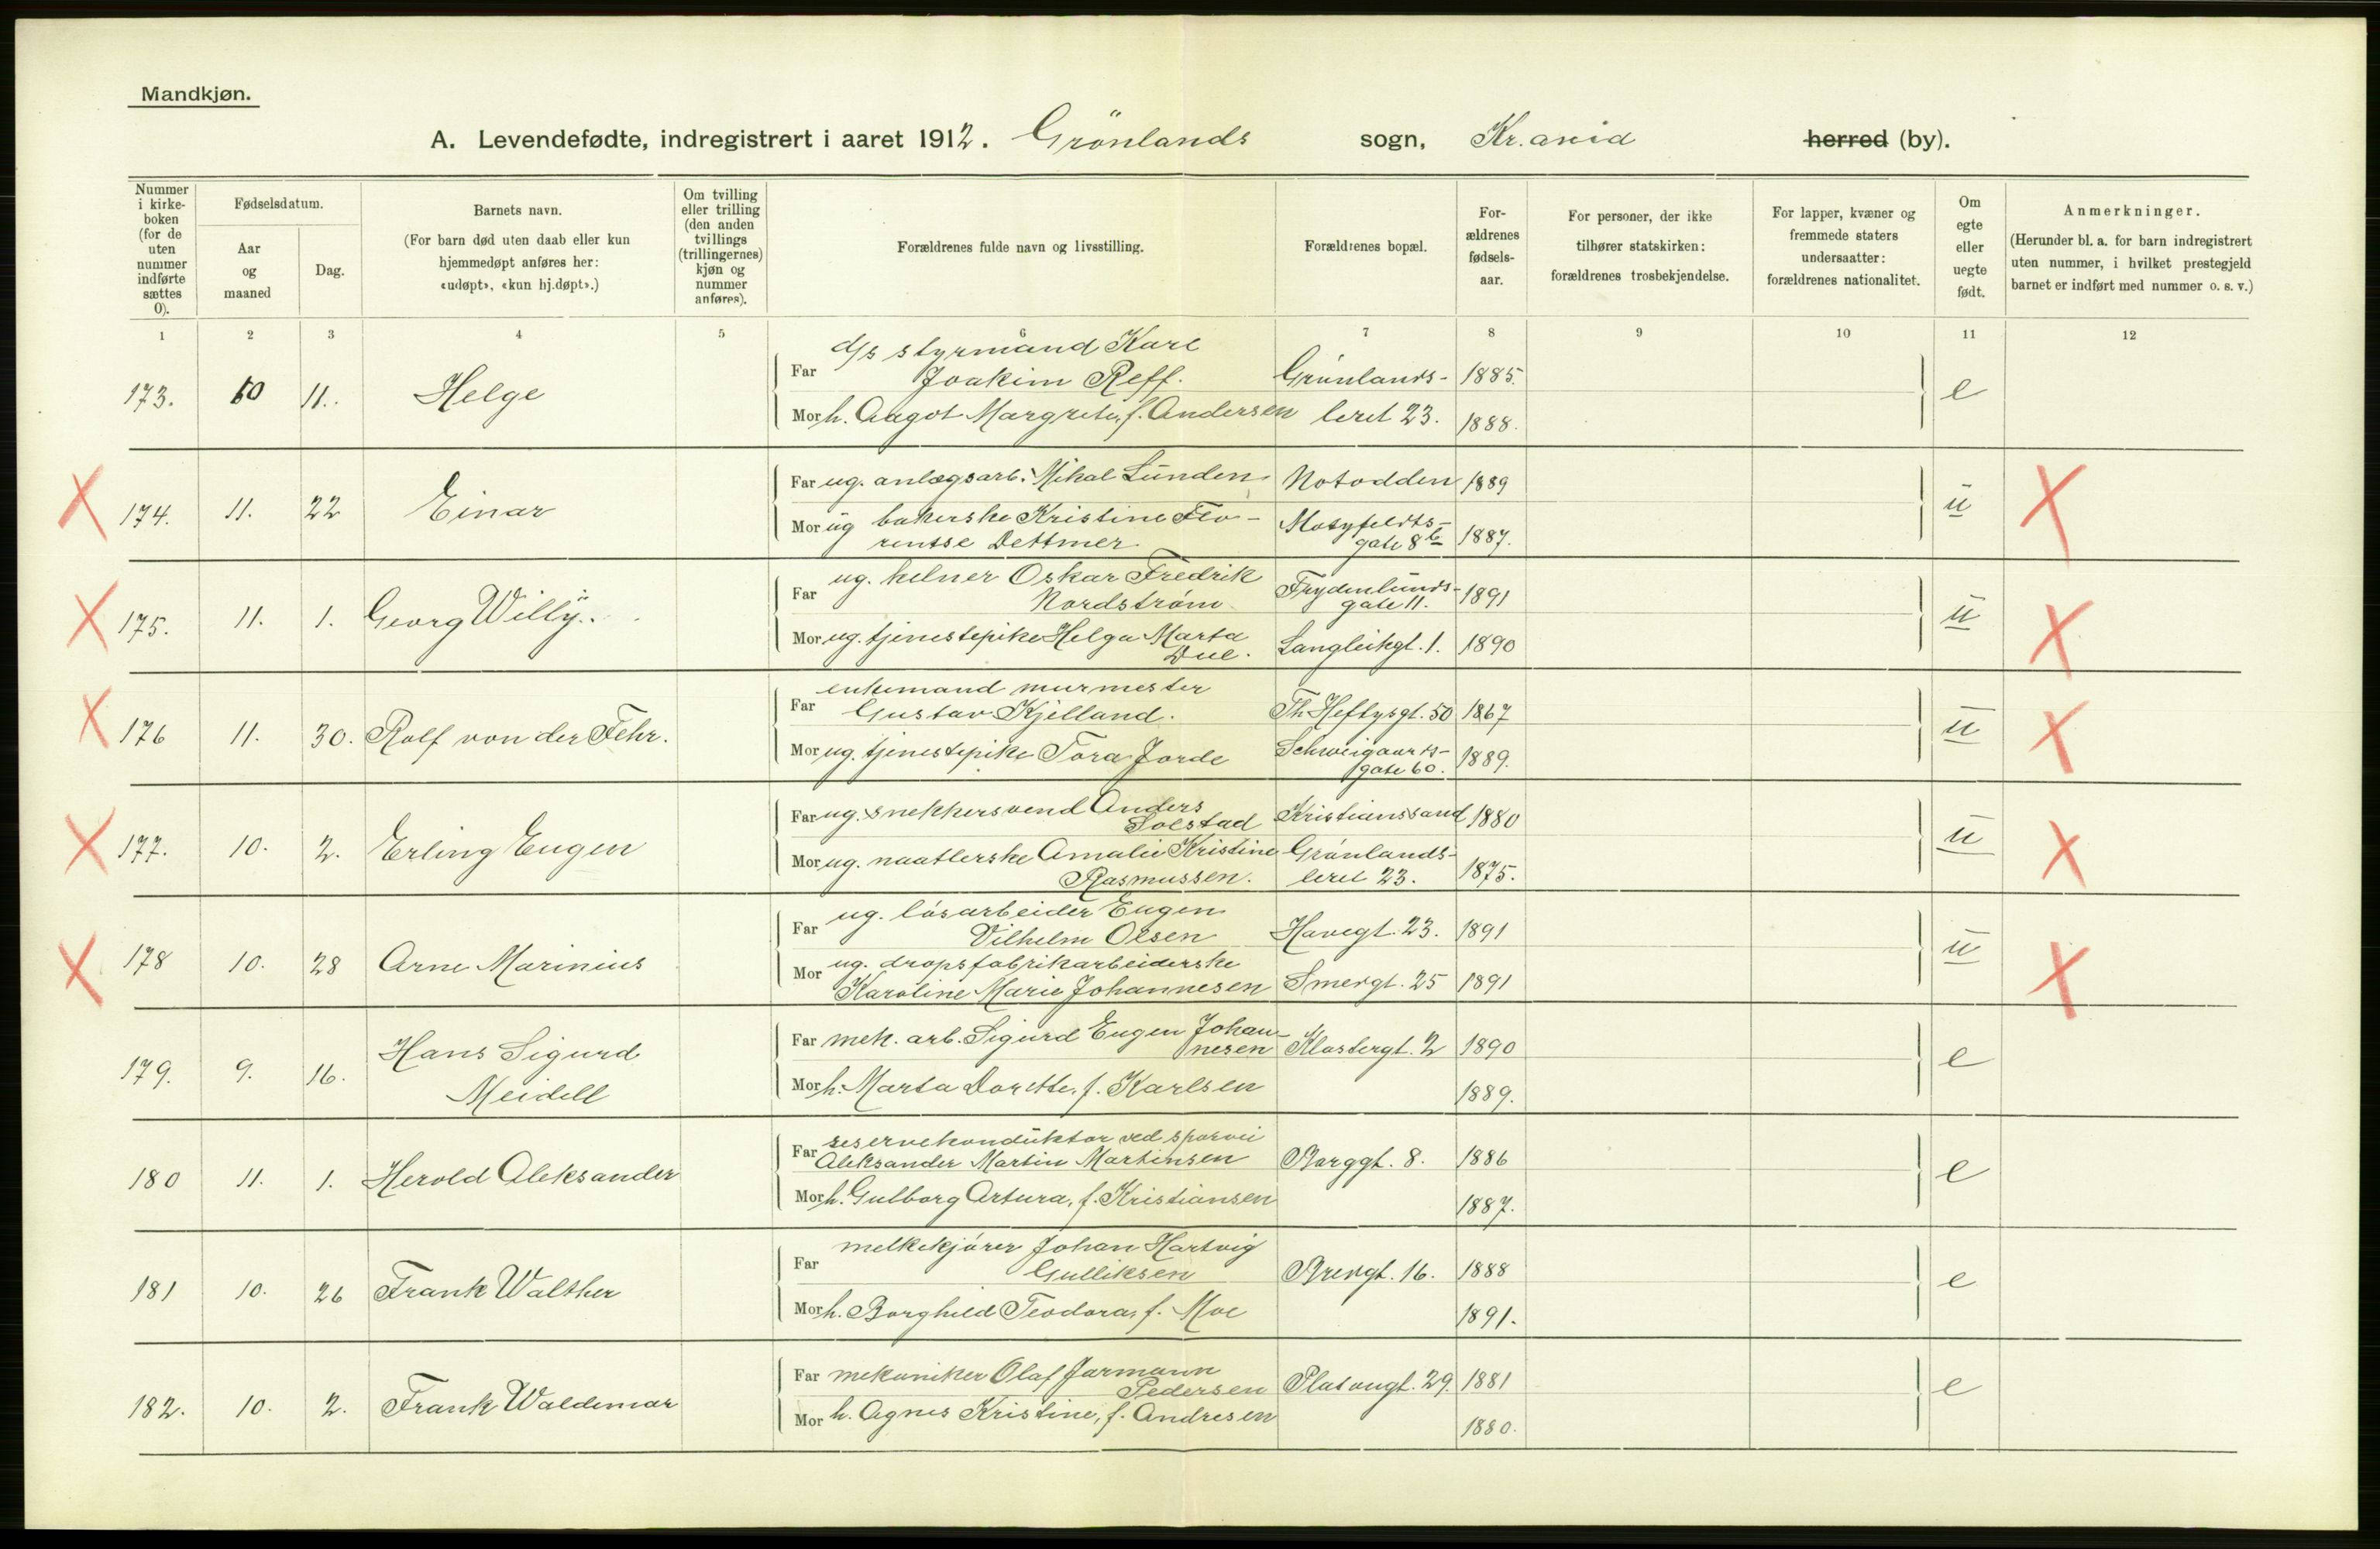 Mandkjøn.
A. Levendefødte, indregistrert i aaret 1912. Grönlands sogn, Kr.ania herred (by).
Nummer i kirke-boken (for de uten nummer indførte sættes 0).
Fødselsdatum.
Aar og maaned
Dag.
Barnets navn.
(For barn død uten daab eller kun
hjemmedøpt anføres her:
«udøpt», «kun hj.døpt».)
Om tvilling
eller trilling
(den anden
tvillings
(trillingernes)
kjøn og
nummer
anføres).
Forældrenes fulde navn og livsstilling.
Forældrenes bopæl.
For-
ældrenes
fødsels-
aar.
For personer, der ikke
tilhører statskirken:
forældrenes trosbekjendelse.
For lapper, kvæner og
fremmede staters
undersaatter:
forældrenes nationalitet.
Om
egte
eller
uegte
født.
Anmerkninger.
(Herunder bl. a. for barn indregistrert
uten nummer, i hvilket prestegjeld
barnet er indført med nummer o. s. v.)
1 2 3 4 5 6 7 8 9 10 11 12
173. 10 11. Helge
Far d/s styrmand Karl
Joakim Reff. Grönlands- 1885.
Mor h. Aagot Margrete, f. Andersen leret 23. 1888.
e
174. 11. 22 Einar
Far ug. anlægsarb. Mikal Lunden Notodden 1889
Mor ug bokerske Kristine Flo-
rentse Dettmer Mosyfeldts-
gate 8b 1887.
u
175. 11. 1. Georg Willy.
Far ug. kelner Oskar Fredrik
Nordström Frydenlunds-
gate 11. 1891
Mor ug. tjenestepike Helga Marta
Due. Langleikgt. 1. 1890
u
176 11. 30. Rolf von der Fehr.
Far enkemand murmester
Gustav Kjelland. Th. Heftysgt. 50 1867
Mor ug. tjenestepike Tora Jorde Schweigaards-
gate 60. 1889.
u
177. 10. 2. Erling Eugen
Far ug. snekkersvend Anders
Solstad Kristianssand 1880
Mor ug. naatlerske Amalie Kristine
Rasmussen. Grönlands-
leret 23. 1875.
u
178 10. 28 Arne Marinius
Far ug. lösarbeider Eugen
Vilhelm Olsen Havegt. 23. 1891
Mor ug. dropsfabrikarbeiderske
Karoline Marie Johannesen Smedgt. 25 1891
u
179. 9. 16. Hans Sigurd
Meidell
Far mek. arb. Sigurd Eugen Johan-
nesen Klostergt. 2 1890
Mor h. Marta Dorette, f. Karlsen 1889.
e
180 11. 1. Herold Aleksander
Far reservekonduktör ved sporvei
Aleksander Martin Martinsen Borggt. 8. 1886
Mor h. Gulborg Artura, f. Kristiansen 1887.
e
181 10. 26 Frank Walther
Far melkekjörer Johan Hartvig
Gulliksen Bredgt. 16. 1888
Mor h. Borghild Teodora, f. Moe 1891.
e
182. 10. 2. Frank Waldemar
Far mekaniker Olaf Jarmann
Pedersen Platougt. 29. 1881
Mor h. Agnes Kristine, f. Andresen 1880.
e